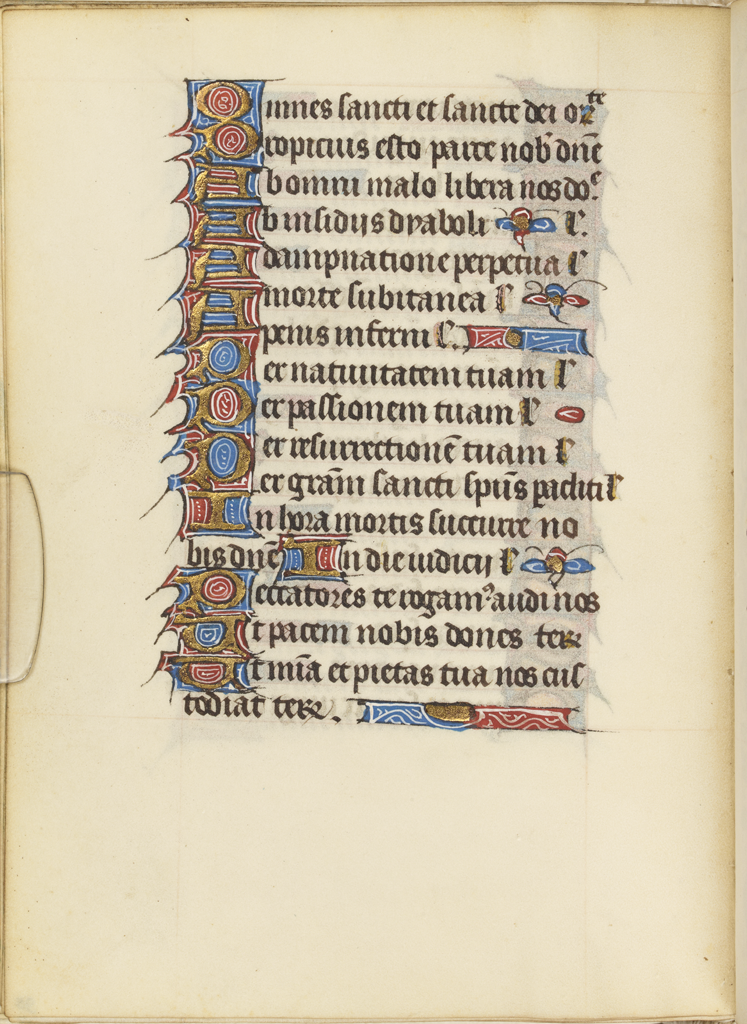 Omnes sancti et sancte dei orate
Propicius esto parce nob dne
Ab omni malo libera nos do
Ab insidijs dyaboli l.
A dampnatione perpetua l
A morte subitanea l
A penis inferni l.
Per natiuitatem tuam l
Per passionem tuam l
Per resurrectione tuam l
Per gram sancti spus paracliti l
In hora mortis succurre no
bis dne In die iudicij l
Peccatores te rogam audi nos
Et pacem nobis dones ter
Et mia et pietas tua nos cus
todiat ter.